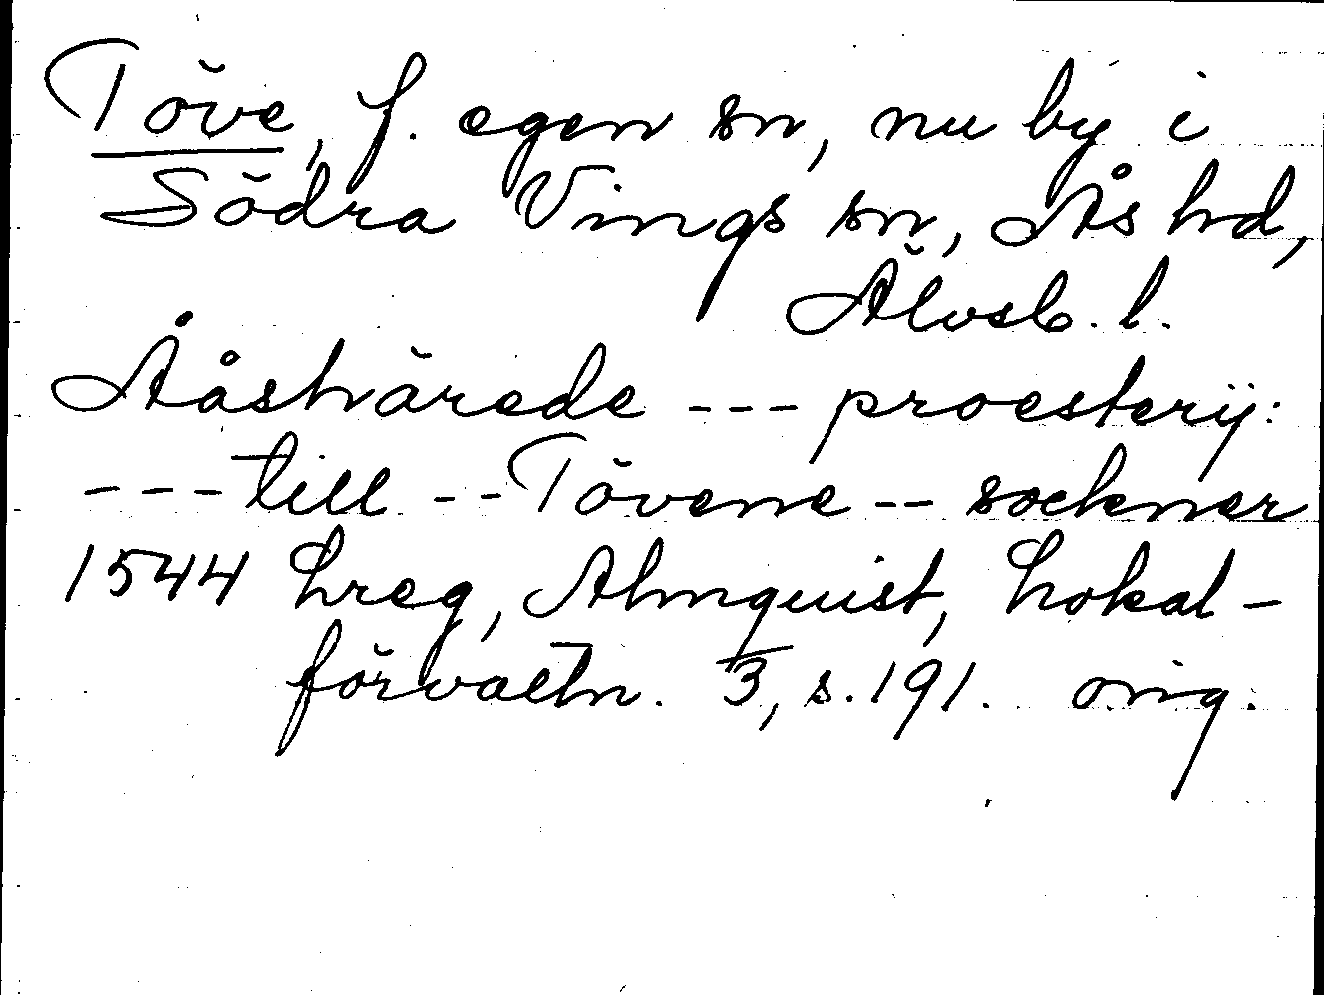 Töve, f. egen sn, nu by i
Södra Vings sn, Ås hd,
Älvsb. l.
Ååshärede --- proesterij:
--- till -- Tövene -- sockner
1544 Lreg, Almquist, Lokal-
förvaltn. 3, s. 191. orig.